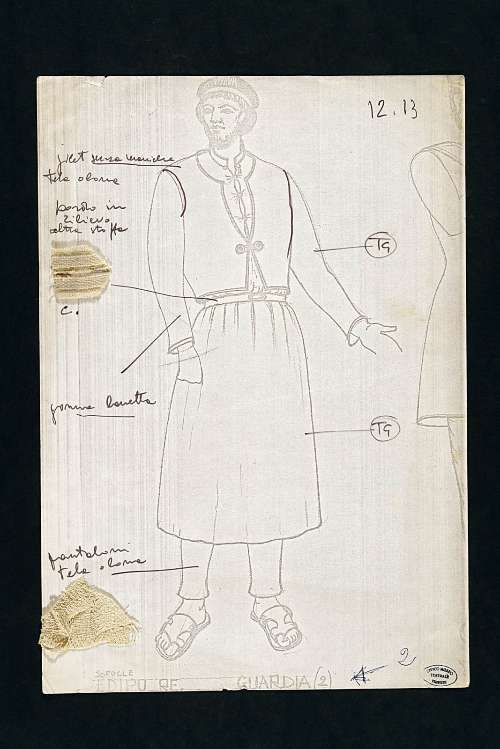 12.13
gilet senza maniche
tela olona
bordo in
rilievo
altra stoffa
TG
c.
gonna lanetta
TG
pantaloni
tela olona
2
SOFOCLE
EDIPO RE GUARDIA (2)